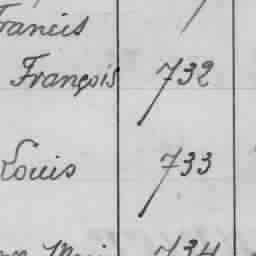 Francis
François 732
Louis 733
734